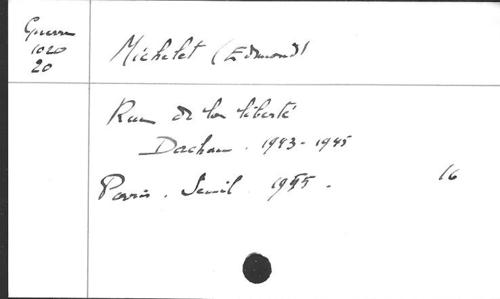 Guerre
1020
20
Michelet (Edmond)
Rue de la liberté
Dachau. 1943-1945
Paris. Seuil. 1955.
16